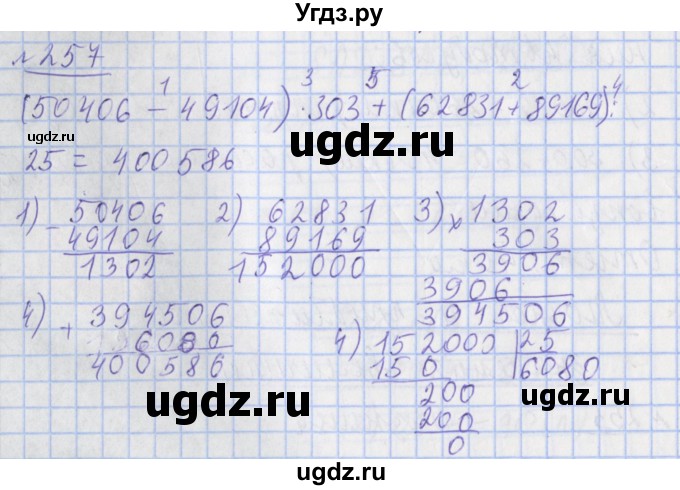 Угдз.ру
№257
(50406 - 49104) · 303 + (62831 + 89169) :
1 3 5 2 4
25 = 400586
ugdz.ru
ugdz.ru
ugdz.ru
1) - 50406
49104
1302
2) 62831
89169
152000
3) x 1302
303
3906
3906
394506
4) + 394506
6080
400586
4) 152000 25
150 6080
200
200
0
ugdz.ru
ugdz.ru
ugdz.ru
Угдз.ру